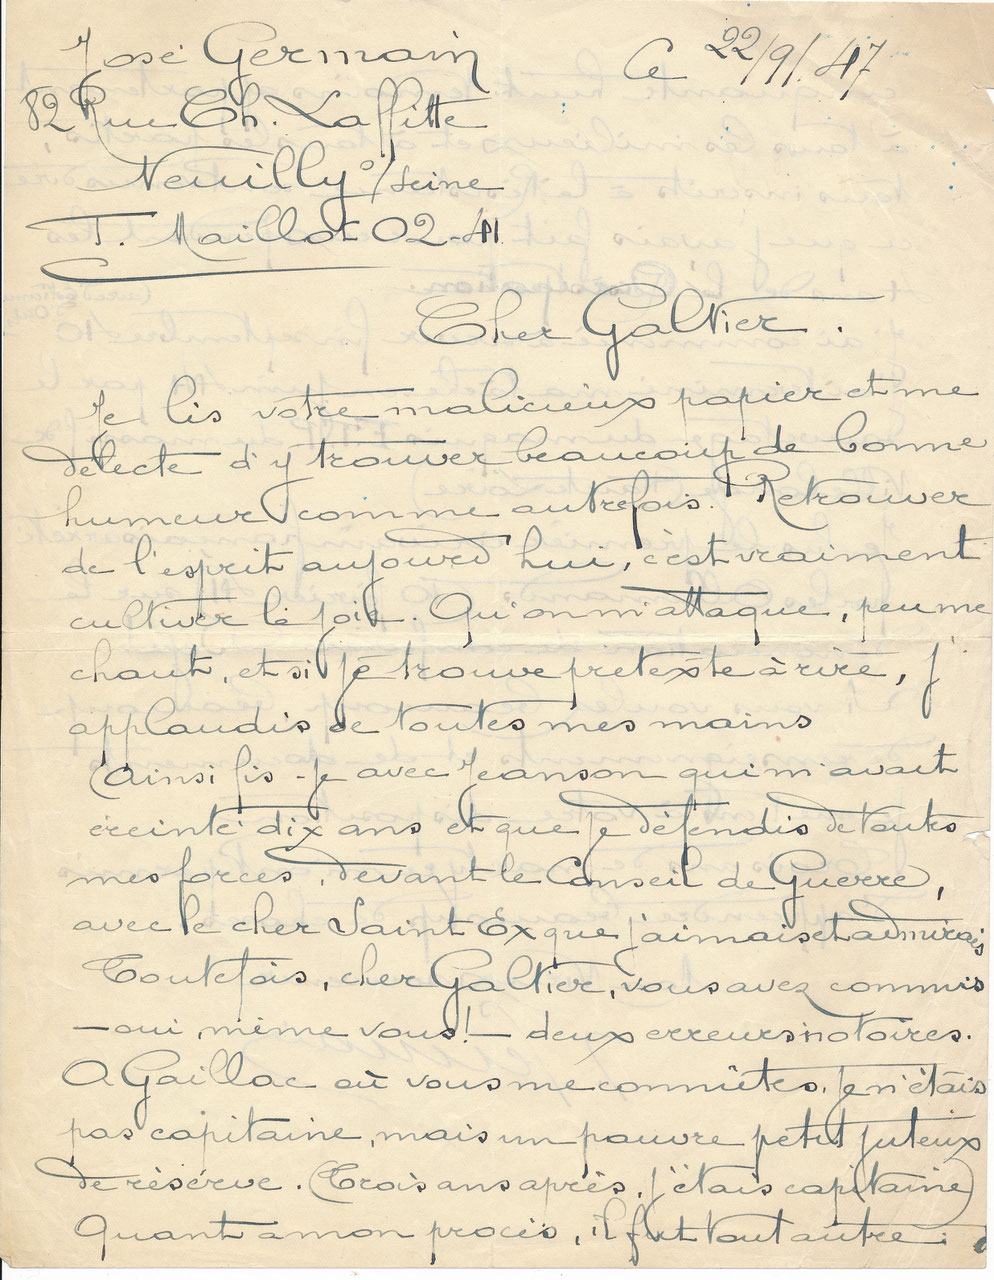 José Germain
82 Rue Ch. Laffitte
Neuilly s/Seine
T. Maillot 02-41
Ce 22/9/47
Cher Galtier.
Je lis votre malicieux papier et me
délecte d'y trouver beaucoup de bonne
humeur comme autrefois. Retrouver
de l'esprit aujourd'hui, c'est vraiment
cultiver la joie. Qu'on m'attaque, peu me
chaut, et si je trouve prétexte à rire, j'
applaudis de toutes mes mains
(Ainsi fis-je avec Jeanson qui m'avait
éreinté dix ans et que je défendis de toutes
mes forces, devant le Conseil de Guerre,
avec le cher Saint Ex que j'aimais et admirais
Toutefois, cher Galtier, vous avez commis
— oui, même vous! — deux erreurs notoires.
A Gaillac où vous me connûtes, je n'étais
pas capitaine, mais un pauvre petit juteux
de réserve. (Trois ans après, j'étais capitaine)
Quant à mon procès, il fut tout autre.